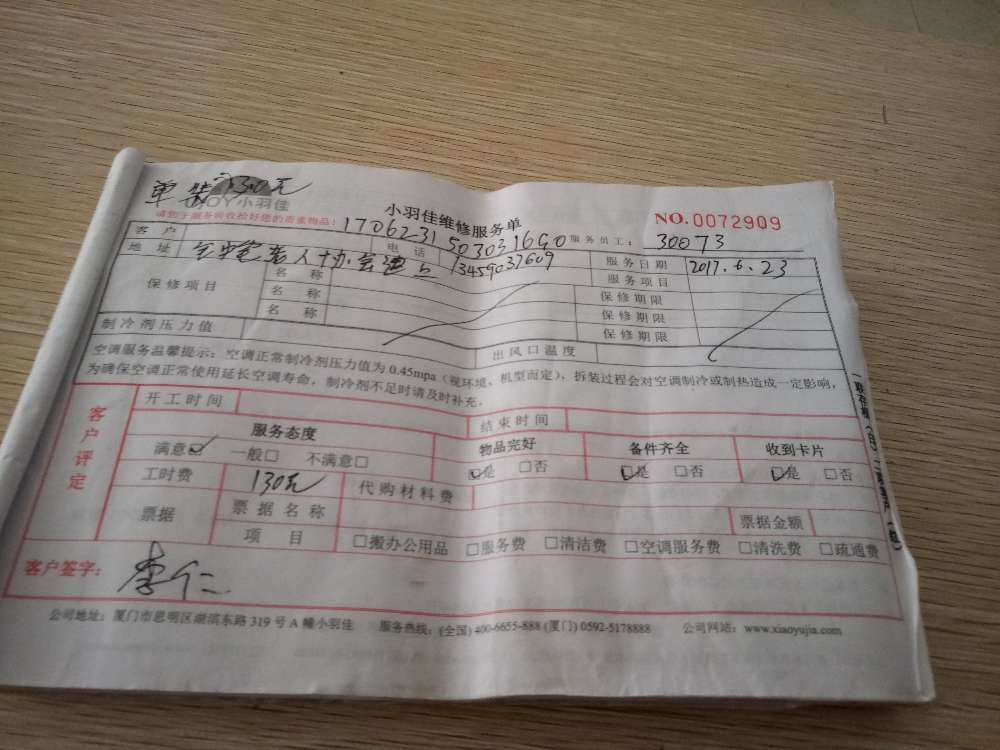 单 装 130元
JOY小羽佳
请您于服务前收拾好您的贵重物品!
小羽佳维修服务单
NO.0072909
客 户
1706231503031690
电 话
服务员工: 30073
地 址
老人协会
13459037609
服务日期 2017.6.23
保修项目
名 称
服务项目
名 称
保修期限
名 称
保修期限
保修期限
制冷剂压力值
出风口温度
空调服务温馨提示:空调正常制冷剂压力值为0.45mpa(视环境、机型而定),拆装过程会对空调制冷或制热造成一定影响,
为确保空调正常使用延长空调寿命,制冷剂不足时请及时补充。
客户评定
开工时间
结束时间
服务态度
物品完好
备件齐全
收到卡片
满意☑ 一般□ 不满意□
☑是 □否
☑是 □否
☑是 □否
工时费 130元
代购材料费
票据
票据名称
票据金额
项 目
□搬办公用品 □服务费 □清洁费 □空调服务费 □清洗费 □疏通费
客户签字: 李仁
公司地址:厦门市思明区湖滨东路319号A幢小羽佳 服务热线:(全国)400-6655-888(厦门)0592-5178888 公司网站:www.xiaoyujia.com